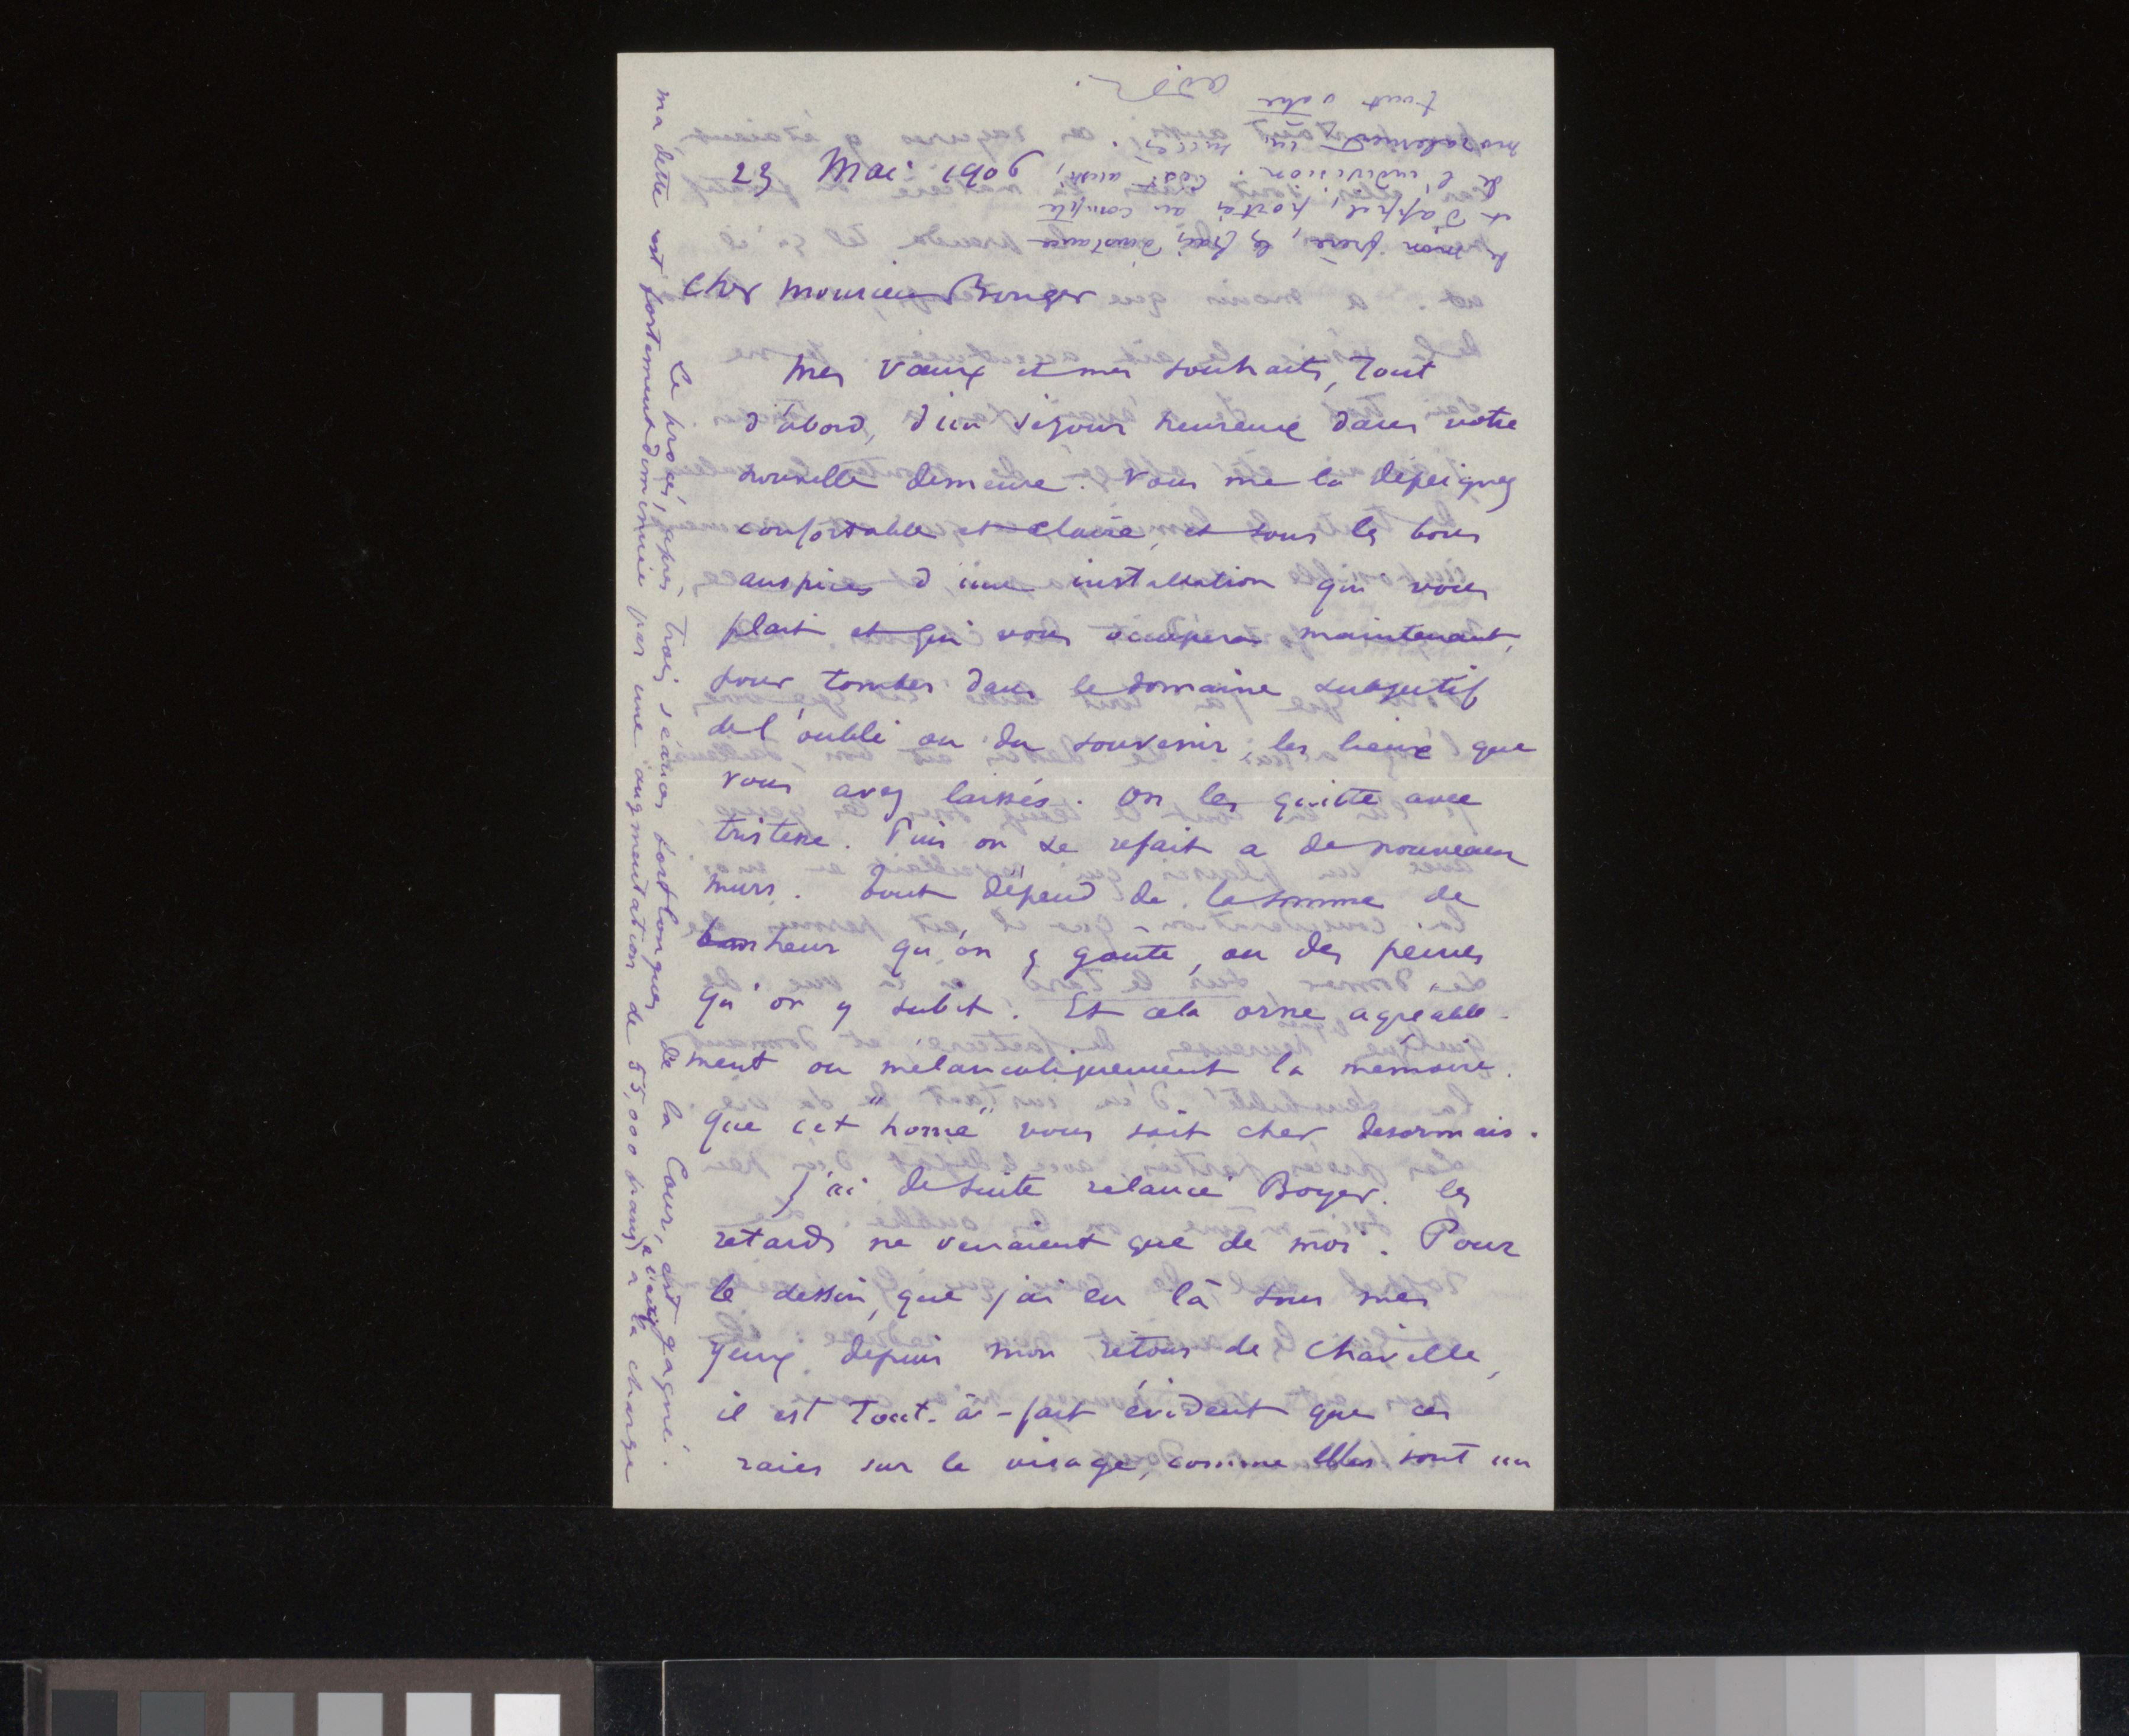 23 Mai 1906
Cher monsieur Bonger
Mes vœux et mes souhaits, tout
d'abord, d'un séjour heureux dans votre
nouvelle demeure. Vous me la dépeignez
confortable et claire, et sous les bons
auspices d'une installation qui vous
plait et qui vous occupera maintenant,
pour tomber dans le domaine subjectif
de l'oubli ou du souvenir, les lieux que
vous avez laissés. On les quitte avec
tristesse. Puis on se refait a de nouveaux
murs. Tout dépend de la somme de
bonheur qu'on y goute, ou des peines
qu'on y subit. Et cela orne agréable-
ment ou mélancoliquement la mémoire.
Que cet "home" vous soit cher desormais.
J'ai de suite relancé Boyer. les
retards ne venaient que de moi. Pour
le dessin, que j'ai eu là sous mes
yeux depuis mon retour de Chaville,
il est tout-à-fait évident que ces
raies sur le visage, comme elles sont un
Le procès, après trois séances fort longues de la Cour, est gagné.
ma dette est fortement diminuée par une augmentation de 55,000 francs à la charge
de mon frère, les frais d'instance
et d'appel, portés au compte
de l'indivision. C'est aussi,
moralement un succès.
tout votre